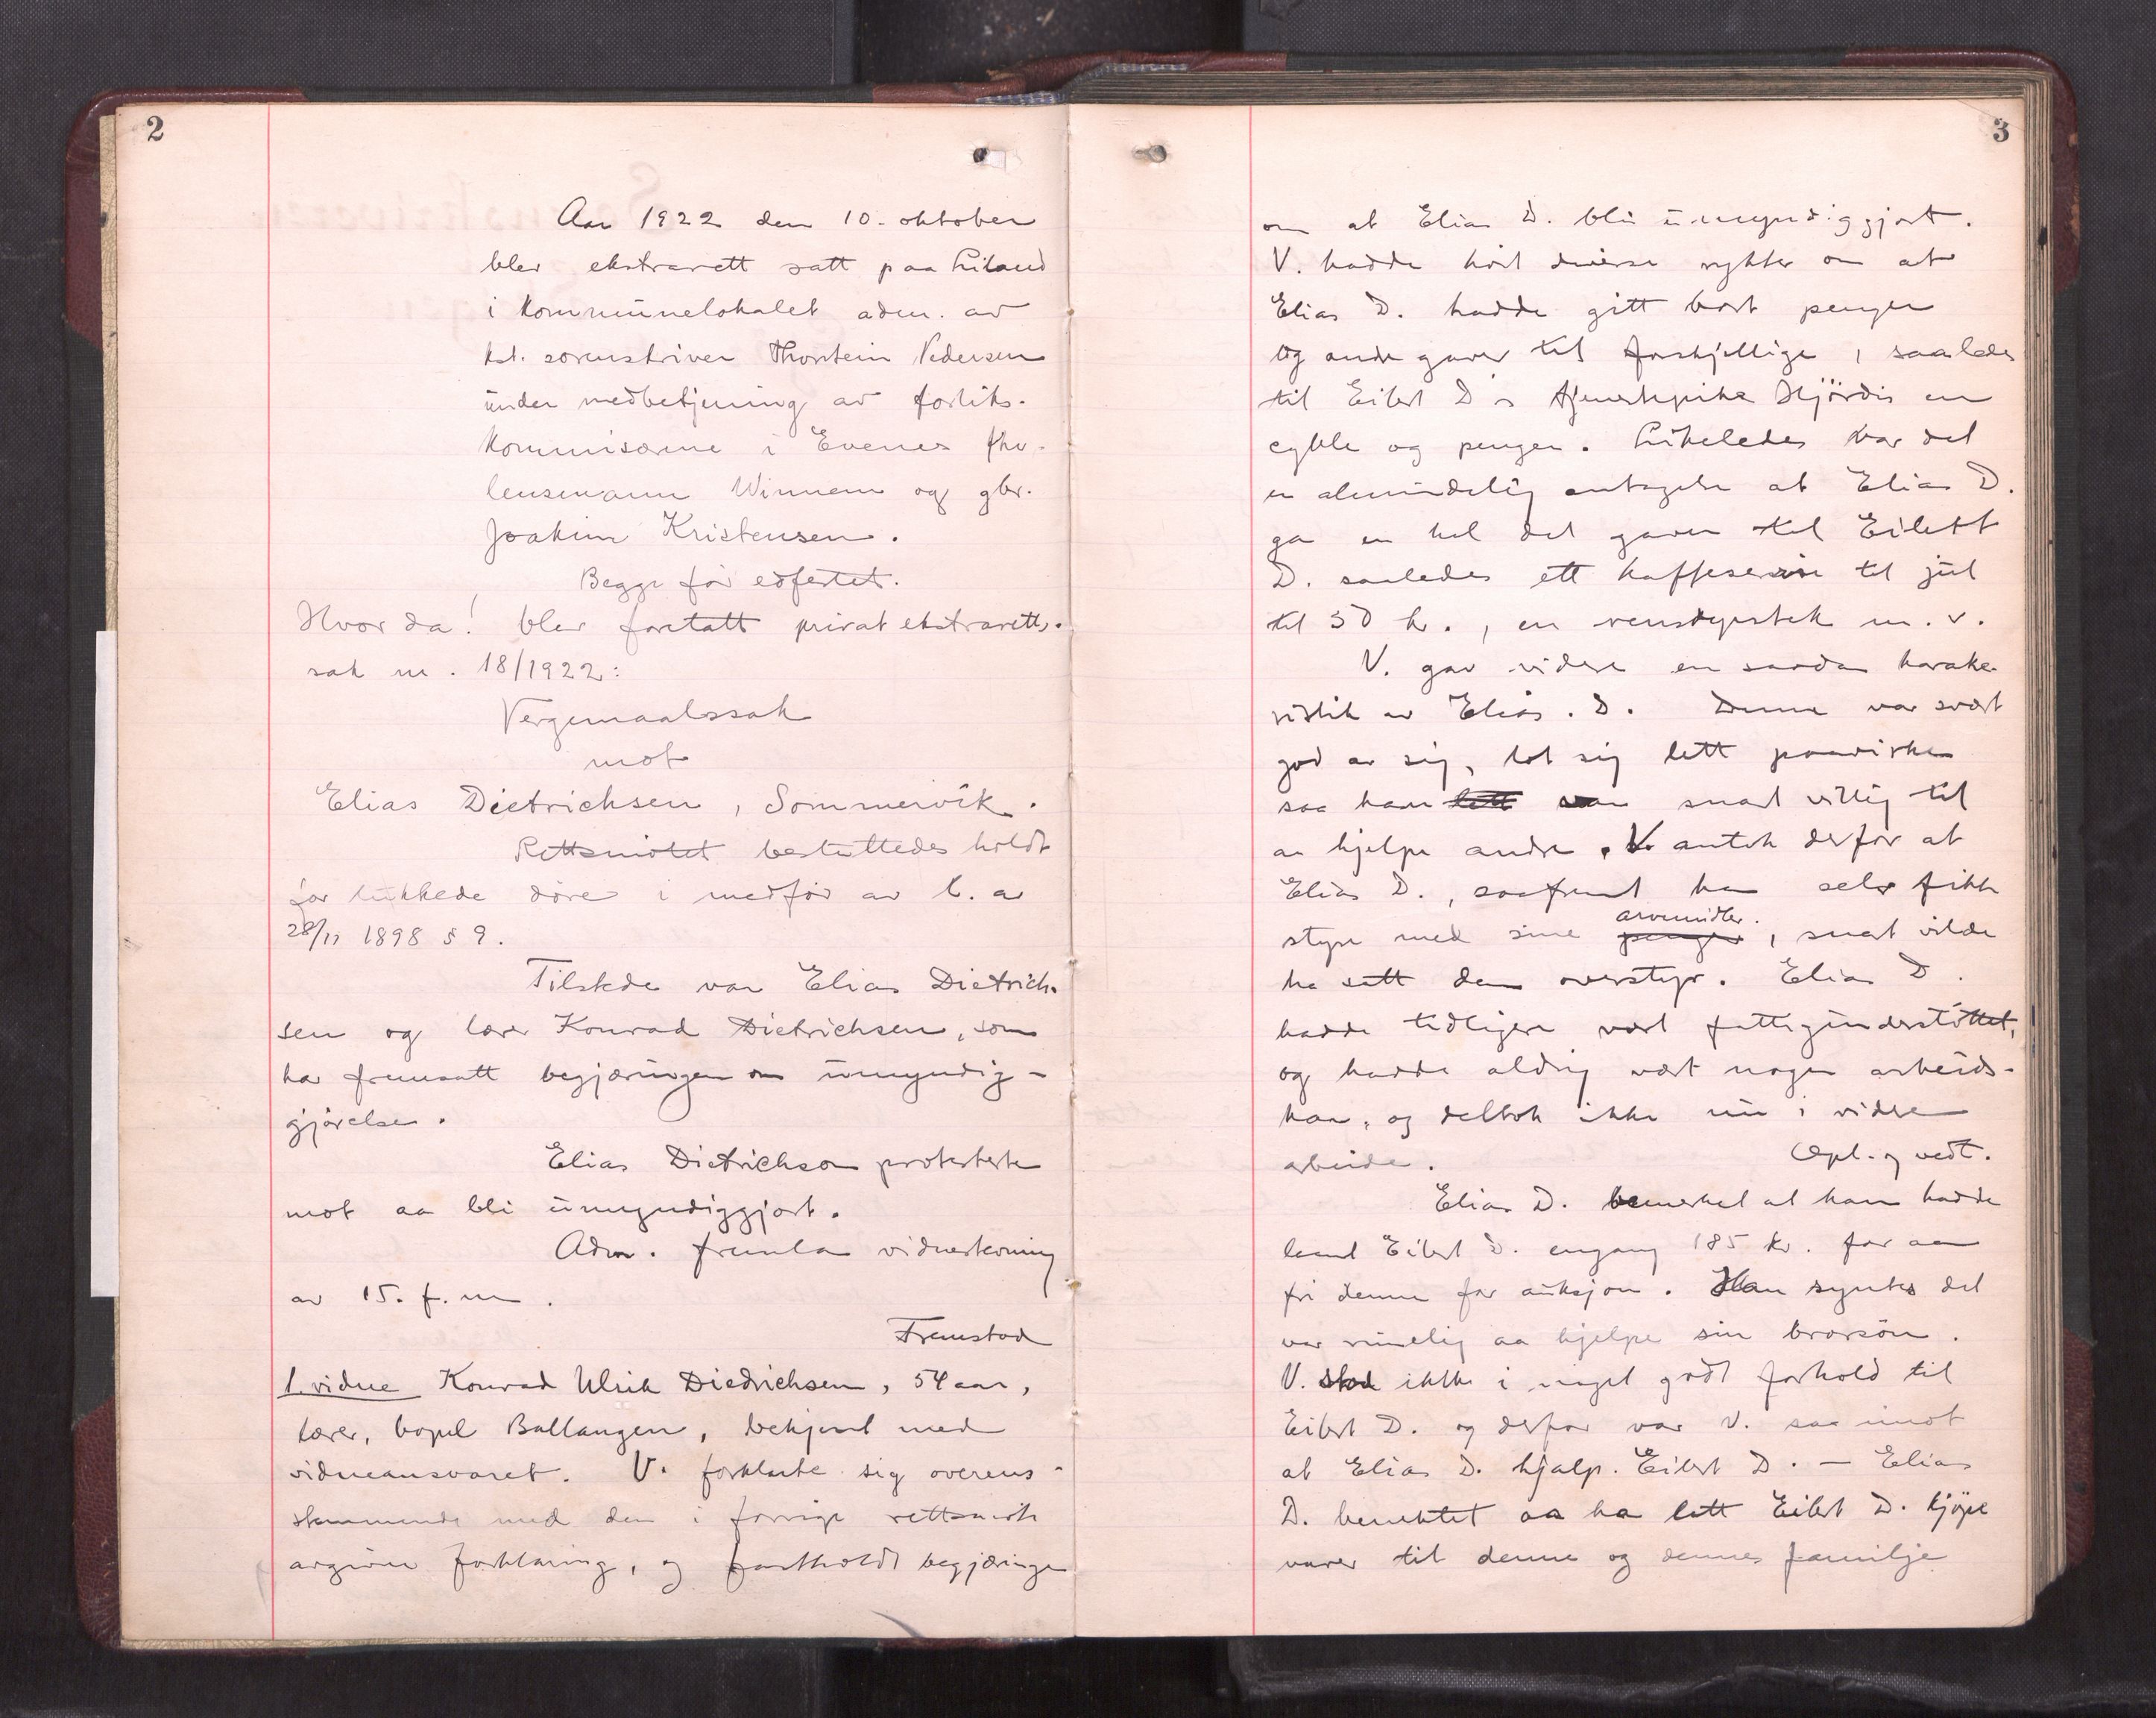 2
Aar 1922 den 10. oktober
blev ekstrarett satt paa Liland
i kommunelokalet adm. av
kst. sorenskriver Thorstein Pedersen
under medbetjening av forliks-
kommisærene i Evenes fhv.
lensmann Winnem og gbr.
Joakim Kristensen.
Begge før edfestet.
Hvor da! blev foretatt privat ekstraretts-
sak nr. 18/1922:
Vergemaalssak
mot
Elias Dietrichsen, Sommervik.
Rettsmøtet besluttedes holdt
for lukkede døre i medfør av l. av
28/11 1898 § 9.
Tilstede var Elias Dietrich-
sen og lærer Konrad Dietrichsen, som
har fremsatt begjæringen om umyndig-
gjørelse.
Elias Dietrichsen protesterte
mot aa bli umyndiggjort.
Adm. fremla vidnestevning
av 15. f. m.
Fremstod
1. vidne Konrad Ulrik Diedrichsen, 54 aar,
lærer, bopel Ballangen, bekjent med
vidneansvaret. V. forklarte sig overens-
stemmende med den i forrige rettsmøte
avgivne forklaring, og fastholdt begjæringen
3
om at Elias D. blir umyndiggjort.
V. hadde hørt diverse rykter om at
Elias D. hadde gitt bort penger
og andre gaver til forskjellige, saaledes
til Eilert D's tjenestepike Hjørdis en
cykle og penger. Likeledes var det
en almindelig antagelse at Elias D.
ga en hel del gaver til Eilert
D. saaledes ett kaffeservise til jul
til 50 kr., en m. v.
V. gav videre en saadan karakte-
ristik av Elias. D. Denne var svært
god av sig, lot sig lett paavirke
saa han lett var snart villig til
aa hjelpe andre. V. antok derfor at
Elias D., saafremt han selv fikk
styre med sine penger arvemidler, snart vilde
ha satt dem overstyr. Elias D.
hadde tidligere vært fattigunderstøttet,
og hadde aldrig vært nogen arbeids-
kar, og deltok ikke nu i videre
arbeide. Opl. og vedt.
Elias D. bemerket at han hadde
laant Eilert D. engang 185 kr. for aa
fri denne for auksjon. Han syntes det
var rimelig aa hjelpe sin brorsøn.
V. stod ikke i noget godt forhold til
Eilert D. og derfor var V. saa imot
at Elias D. hjalp Eilert D. – Elias
D. benektet aa ha latt Eilert D. kjøpe
varer til denne og dennes familje